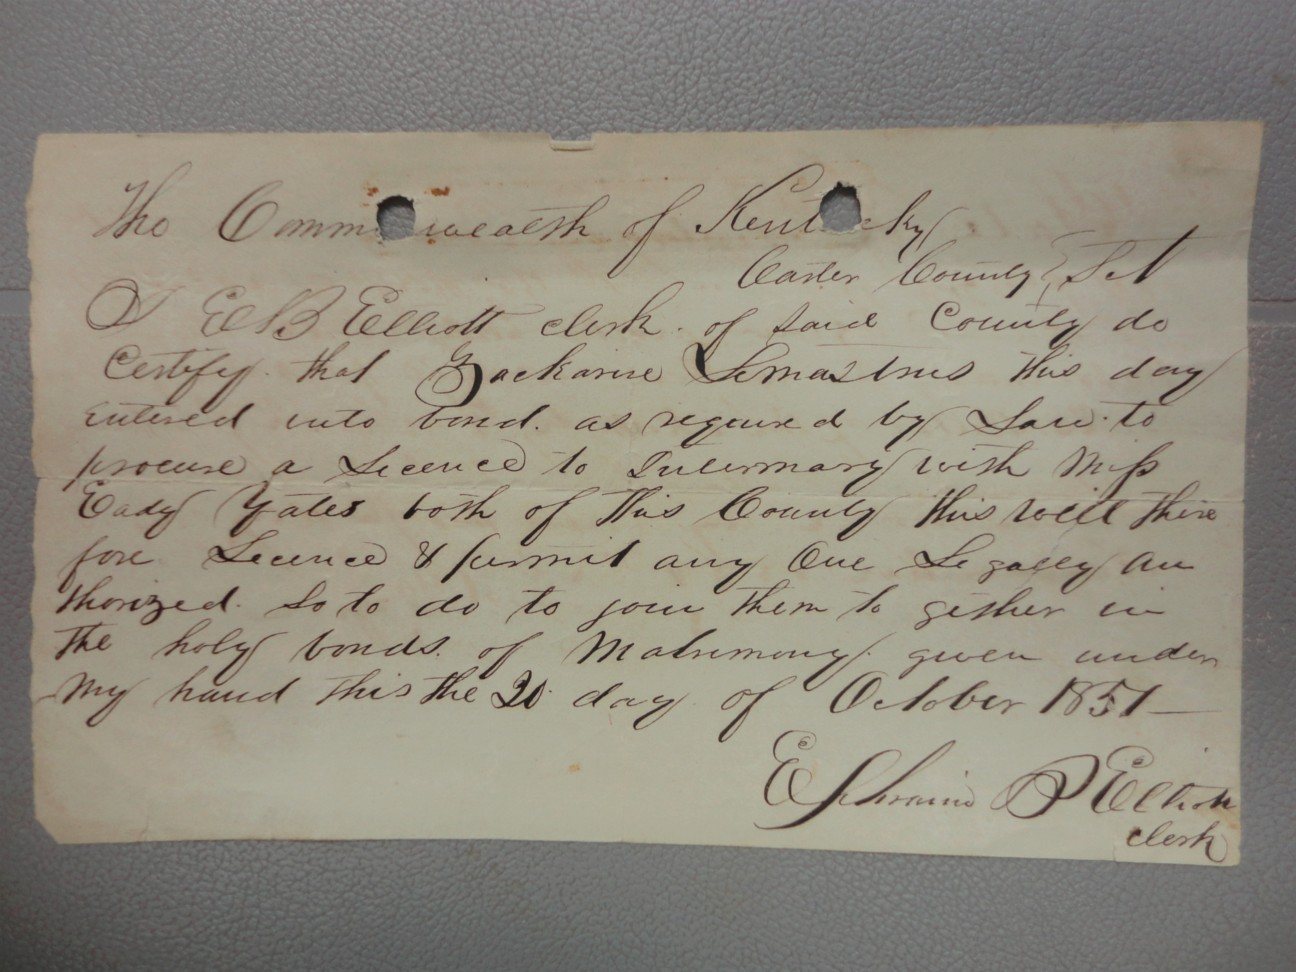 The Comm wealth of Kent cky
Carter County Sct
I E B Elliott clerk of said County do
Certify that Zackarise Lemastrus this day
entered into bond as requred by Law to
procure a Licence to Intermary with Miss
Eady Yates both of this County this will there
fore Licence & permit any One Legally au
thorized so to do to join them to gether in
the holy bonds of Matrimony given under
My hand this the 20 day of October 1851
Ephraim B Elliott
clerk